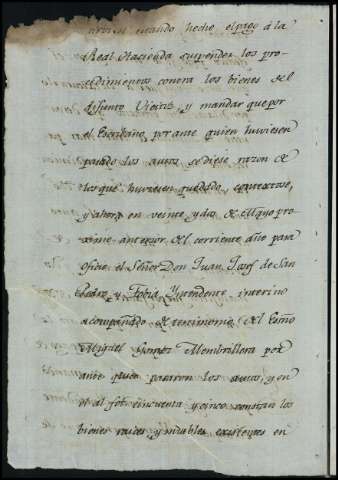 estando hecho el pago á la
Real Hacienda suspender los pro-
cedimientos contra los bienes del
difunto y mandar que por
el Escribano, por ante quien huviesen
pasado los autos se diese razon de
los que huviesen quedado, y
y ahora en veinte y dos de Mayo pro-
ximo anterior del corriente año pasa
oficio el Señor Don Juan Josef de San
Pedro y Intendente interino
acompañado de testimonio del
Miguel Membrillera por
ante quien pasaron los autos, y en
el al fol. cincuenta y cinco constan los
bienes raices y muebles existentes en